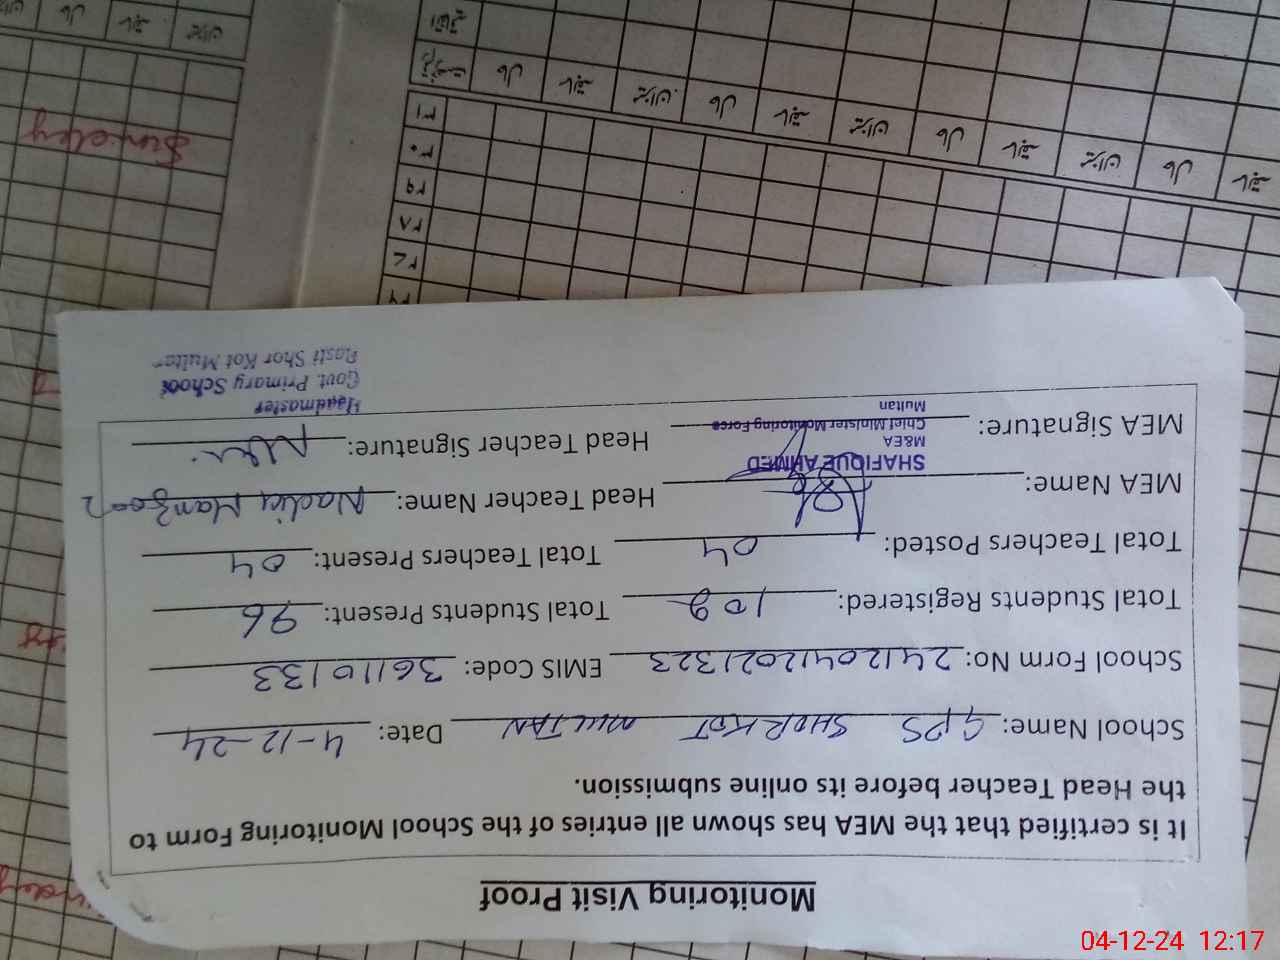 Monitoring Visit Proof
It is certified that the MEA has shown all entries of the School Monitoring Form to
the Head Teacher before its online submission.
School Name: GPS SHORKOT MULTAN Date: 4-12-24
School Form No: 24120412021323 EMIS Code: 36110133
Total Students Registered: 109 Total Students Present: 96
Total Teachers Posted: 04 Total Teachers Present: 04
MEA Name: Head Teacher Name: Nadia Manzoor
SHAFIQUE AHMED
M&EA
Chief Minister Monitoring Force
Multan
MEA Signature: Head Teacher Signature:
Headmaster
Govt. Primary School
Basti Shor Kot Multan
۲۷
۲۸
۲۹
۳۰
۳۱
میزان
بقیہ
حال
میزان
بقیہ
حال
میزان
بقیہ
حال
میزان
بقیہ
حال
Sunday
04-12-24 12:17